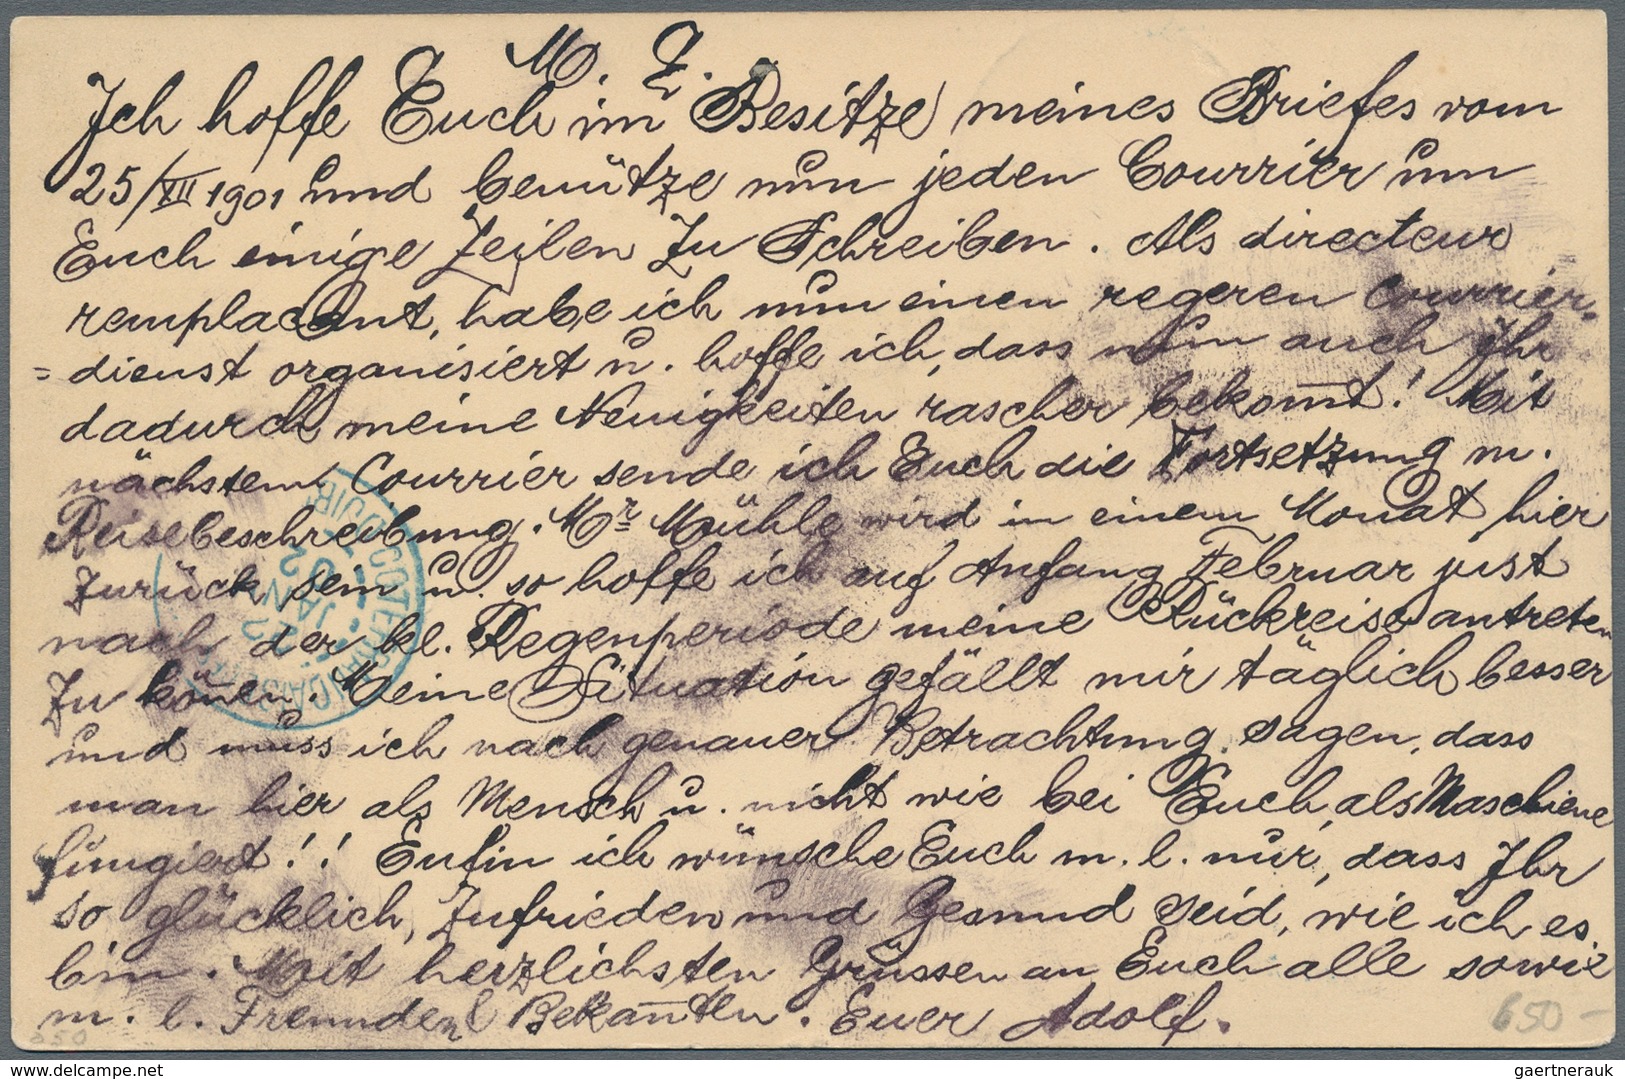 M. L.
Ich hoffe Euch im Besitze meines Briefes vom
25/XII 1901 und benütze nun jeden Courrier um
Euch einige Zeilen zu Schreiben. Als directeur
remplacant, habe ich nun einen regeren Courrier-
=dienst organisiert u. hoffe ich, dass nun auch Ihr
dadurch meine Neuigkeiten rascher bekom̄t! Mit
nächstem Courrier sende ich Euch die Fortsetzung m.
Reisebeschreibung. Mr Mühle wird in einem Monat hier
zurück sein u. so hoffe ich auf Anfang Februar just
nach der kl. Regenperiode meine Rückreise antreten
zu kön̄en. Meine Situation gefällt mir täglich besser
und muss ich nach genauer Betrachtung sagen, dass
man hier als Mensch u. nicht wie bei Euch, als Maschiene
fungiert!! Enfin ich wünsche Euch m. l. nur, dass Ihr
so glücklich, zufrieden und Gesund seid, wie ich es
bin. Mit herzlichsten Grüssen an Euch alle sowie
m. l. Freunden & Bekan̄ten. Euer Adolf.
650 -
JANV
02
gaertnerauk